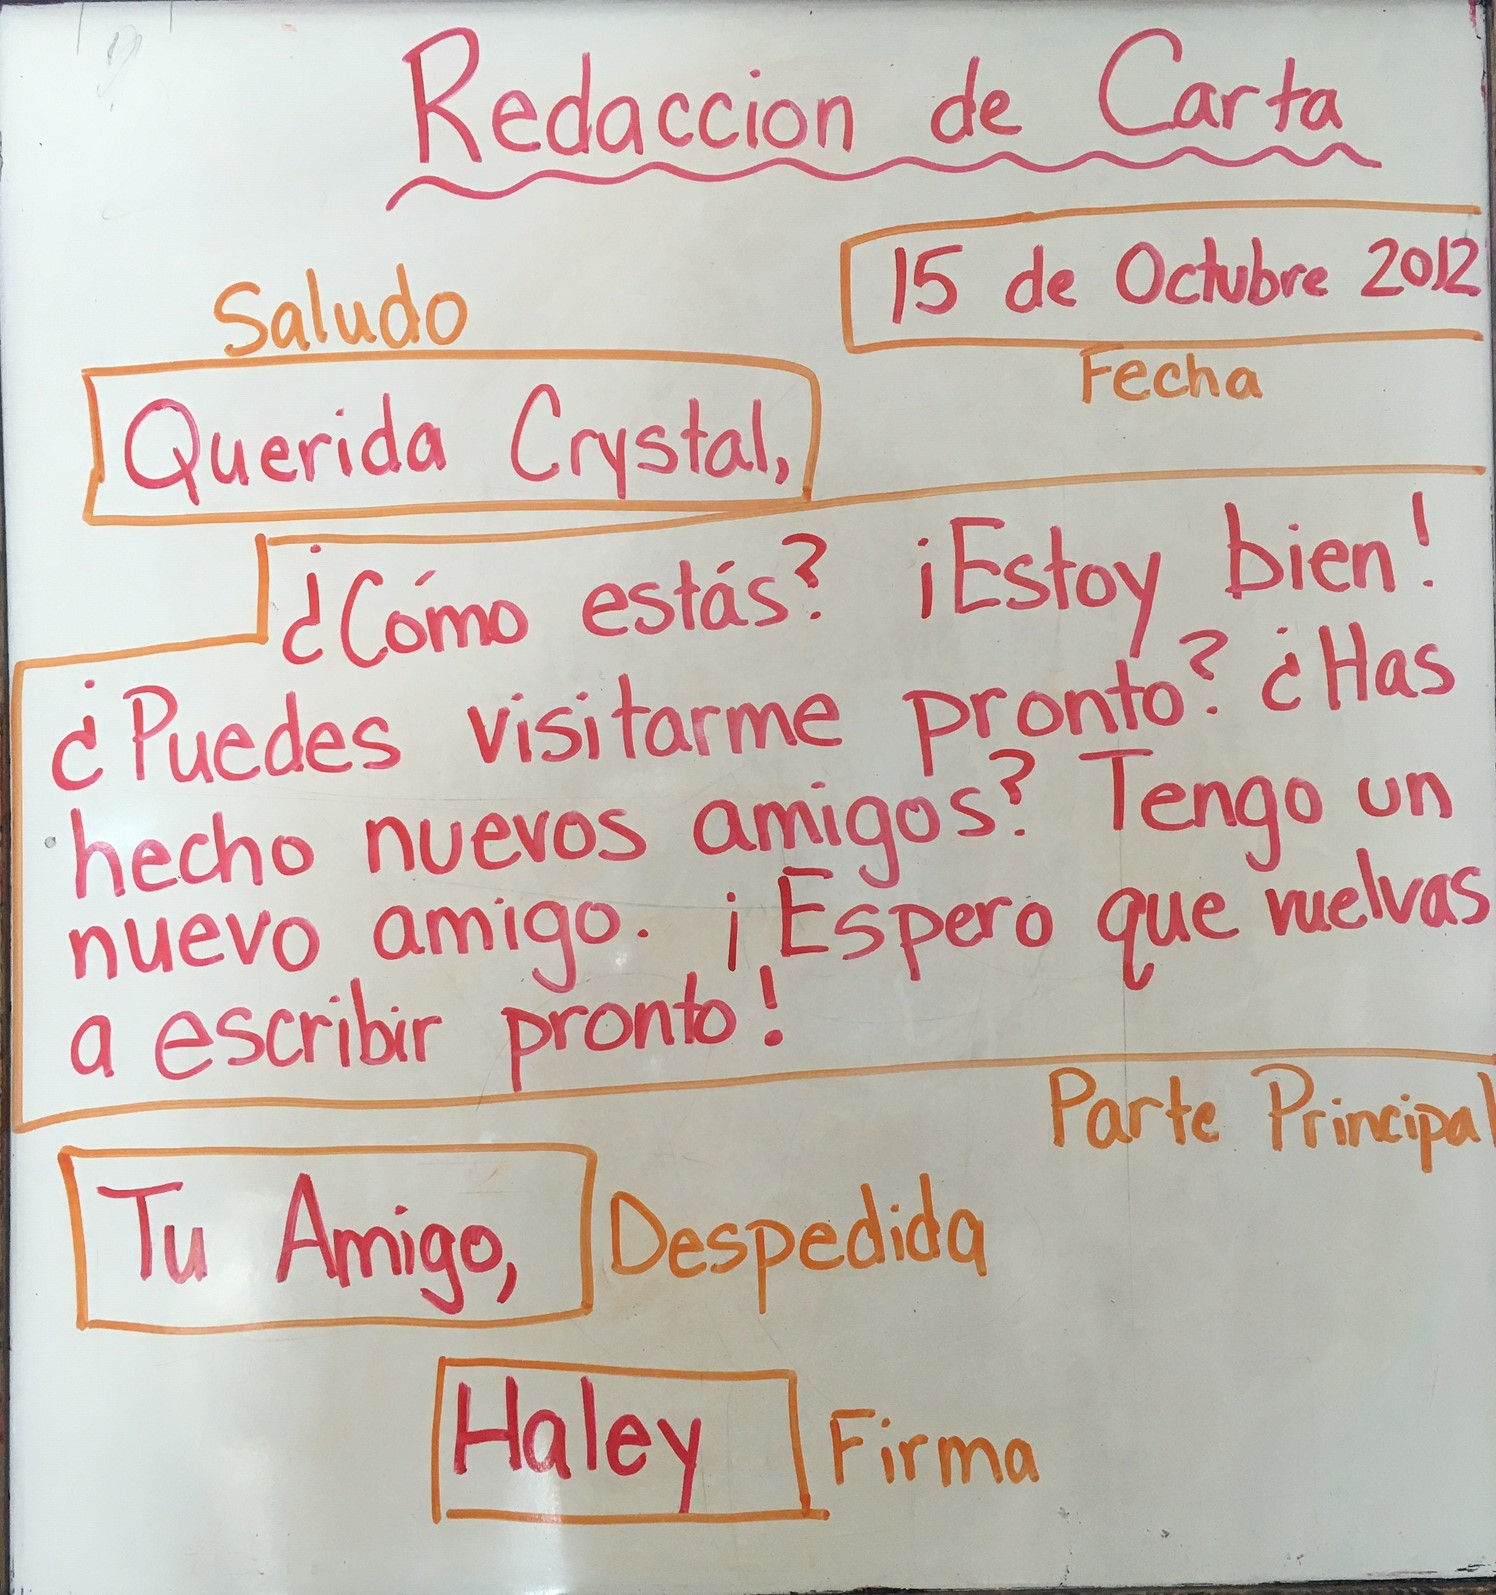 Redaccion de Carta
15 de Octubre 2012
Fecha
Saludo
Querida Crystal,
¿Cómo estás? ¡Estoy bien!
¿Puedes visitarme pronto? ¿Has
hecho nuevos amigos? Tengo un
nuevo amigo. ¡Espero que vuelvas
a escribir pronto!
Parte Principal
Tu Amigo, Despedida
Haley Firma